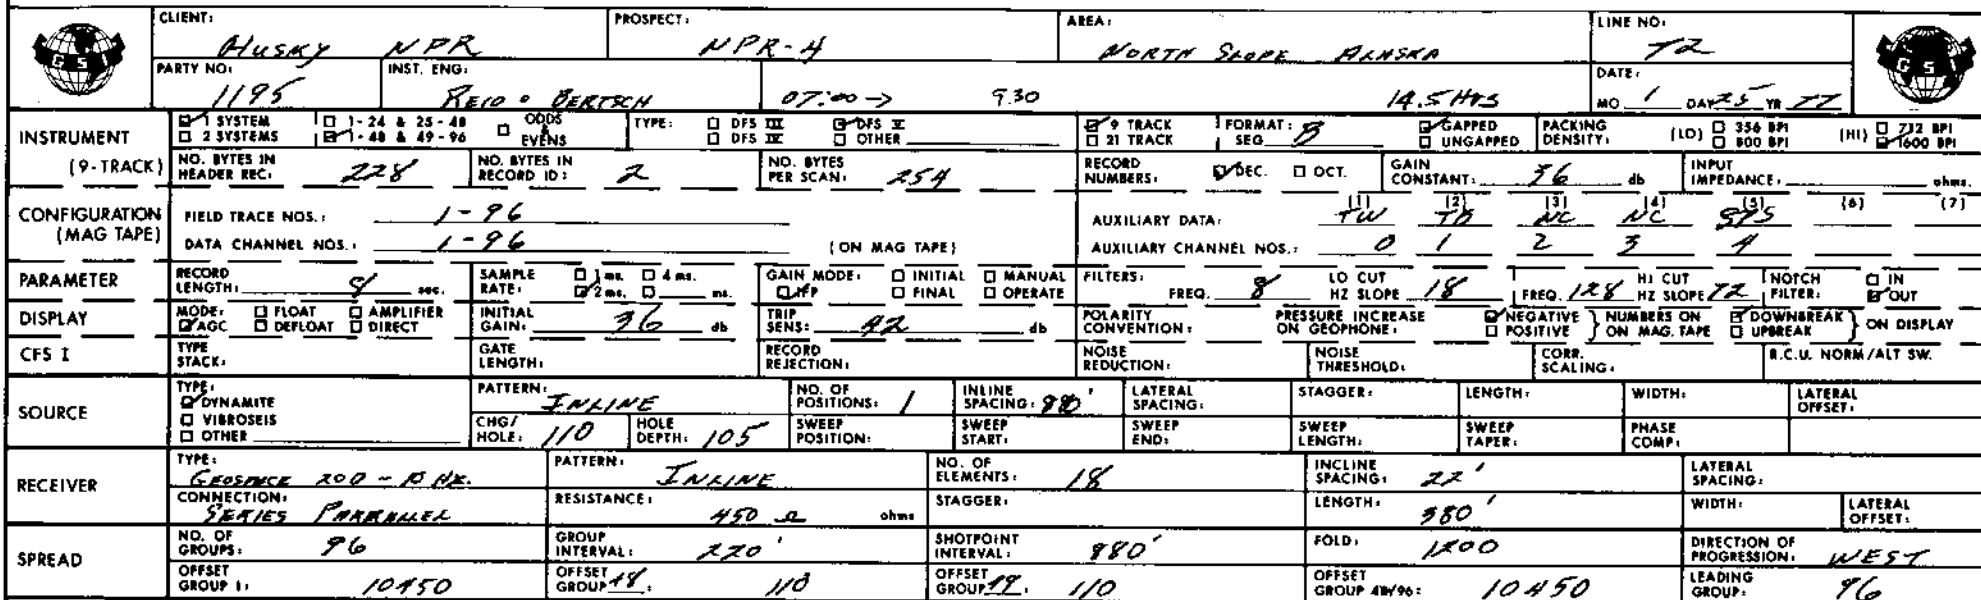 CLIENT: PROSPECT: AREA: LINE NO:
HUSKY NPR NPR-4 NORTH SLOPE ALASKA 72
GSI GSI
PARTY NO: INST. ENG: DATE:
1195 REID & BERTSCH 07:00 -> 930 14.5 HRS MO 1 DAY 25 YR 77
INSTRUMENT 1 SYSTEM 1-24 & 25-48 ODDS & EVENS TYPE: DFS III DFS V 9 TRACK FORMAT: GAPPED PACKING DENSITY: (LO) 356 BPI (HI) 712 BPI
2 SYSTEMS 1-48 & 49-96 DFS IV OTHER 21 TRACK SEG B UNGAPPED 800 BPI 1600 BPI
(9-TRACK) NO. BYTES IN HEADER REC: 228 NO. BYTES IN RECORD ID: 2 NO. BYTES PER SCAN: 254 RECORD NUMBERS: DEC. OCT. GAIN CONSTANT: 36 db INPUT IMPEDANCE: ohms.
CONFIGURATION FIELD TRACE NOS.: 1-96 AUXILIARY DATA: (1) TW (2) TB (3) NC (4) NC (5) SYS (6) (7)
(MAG TAPE) DATA CHANNEL NOS.: 1-96 (ON MAG TAPE) AUXILIARY CHANNEL NOS.: 0 1 2 3 4
PARAMETER RECORD LENGTH: 8 sec. SAMPLE RATE: 1 ms. 4 ms. 2 ms. ms. GAIN MODE: INITIAL MANUAL IFP FINAL OPERATE FILTERS: FREQ. 8 LO CUT HZ SLOPE 18 FREQ. 128 HI CUT HZ SLOPE 72 NOTCH FILTER: IN OUT
DISPLAY MODE: FLOAT AMPLIFIER AGC DEFLOAT DIRECT INITIAL GAIN: 36 db TRIP SENS: 42 db POLARITY CONVENTION: PRESSURE INCREASE ON GEOPHONE: NEGATIVE POSITIVE NUMBERS ON ON MAG. TAPE DOWNBREAK UPBREAK ON DISPLAY
CFS I TYPE STACK: GATE LENGTH: RECORD REJECTION: NOISE REDUCTION: NOISE THRESHOLD: CORR. SCALING: R.C.U. NORM/ALT SW.
SOURCE TYPE: DYNAMITE VIBROSEIS OTHER PATTERN: INLINE NO. OF POSITIONS: 1 INLINE SPACING: 880' LATERAL SPACING: STAGGER: LENGTH: WIDTH: LATERAL OFFSET:
CHG/HOLE: 110 HOLE DEPTH: 105 SWEEP POSITION: SWEEP START: SWEEP END: SWEEP LENGTH: SWEEP TAPER: PHASE COMP:
RECEIVER TYPE: GEOSPACE 200 - HZ. PATTERN: INLINE NO. OF ELEMENTS: 18 INCLINE SPACING: 22' LATERAL SPACING:
CONNECTION: SERIES PARRALLEL RESISTANCE: 450 Ω ohms STAGGER: LENGTH: 380' WIDTH: LATERAL OFFSET:
SPREAD NO. OF GROUPS: 96 GROUP INTERVAL: 220' SHOTPOINT INTERVAL: 880' FOLD: 1200 DIRECTION OF PROGRESSION: WEST
OFFSET GROUP 1: 10450 OFFSET GROUP 48: 110 OFFSET GROUP 49: 110 OFFSET GROUP 48/96: 10450 LEADING GROUP: 96